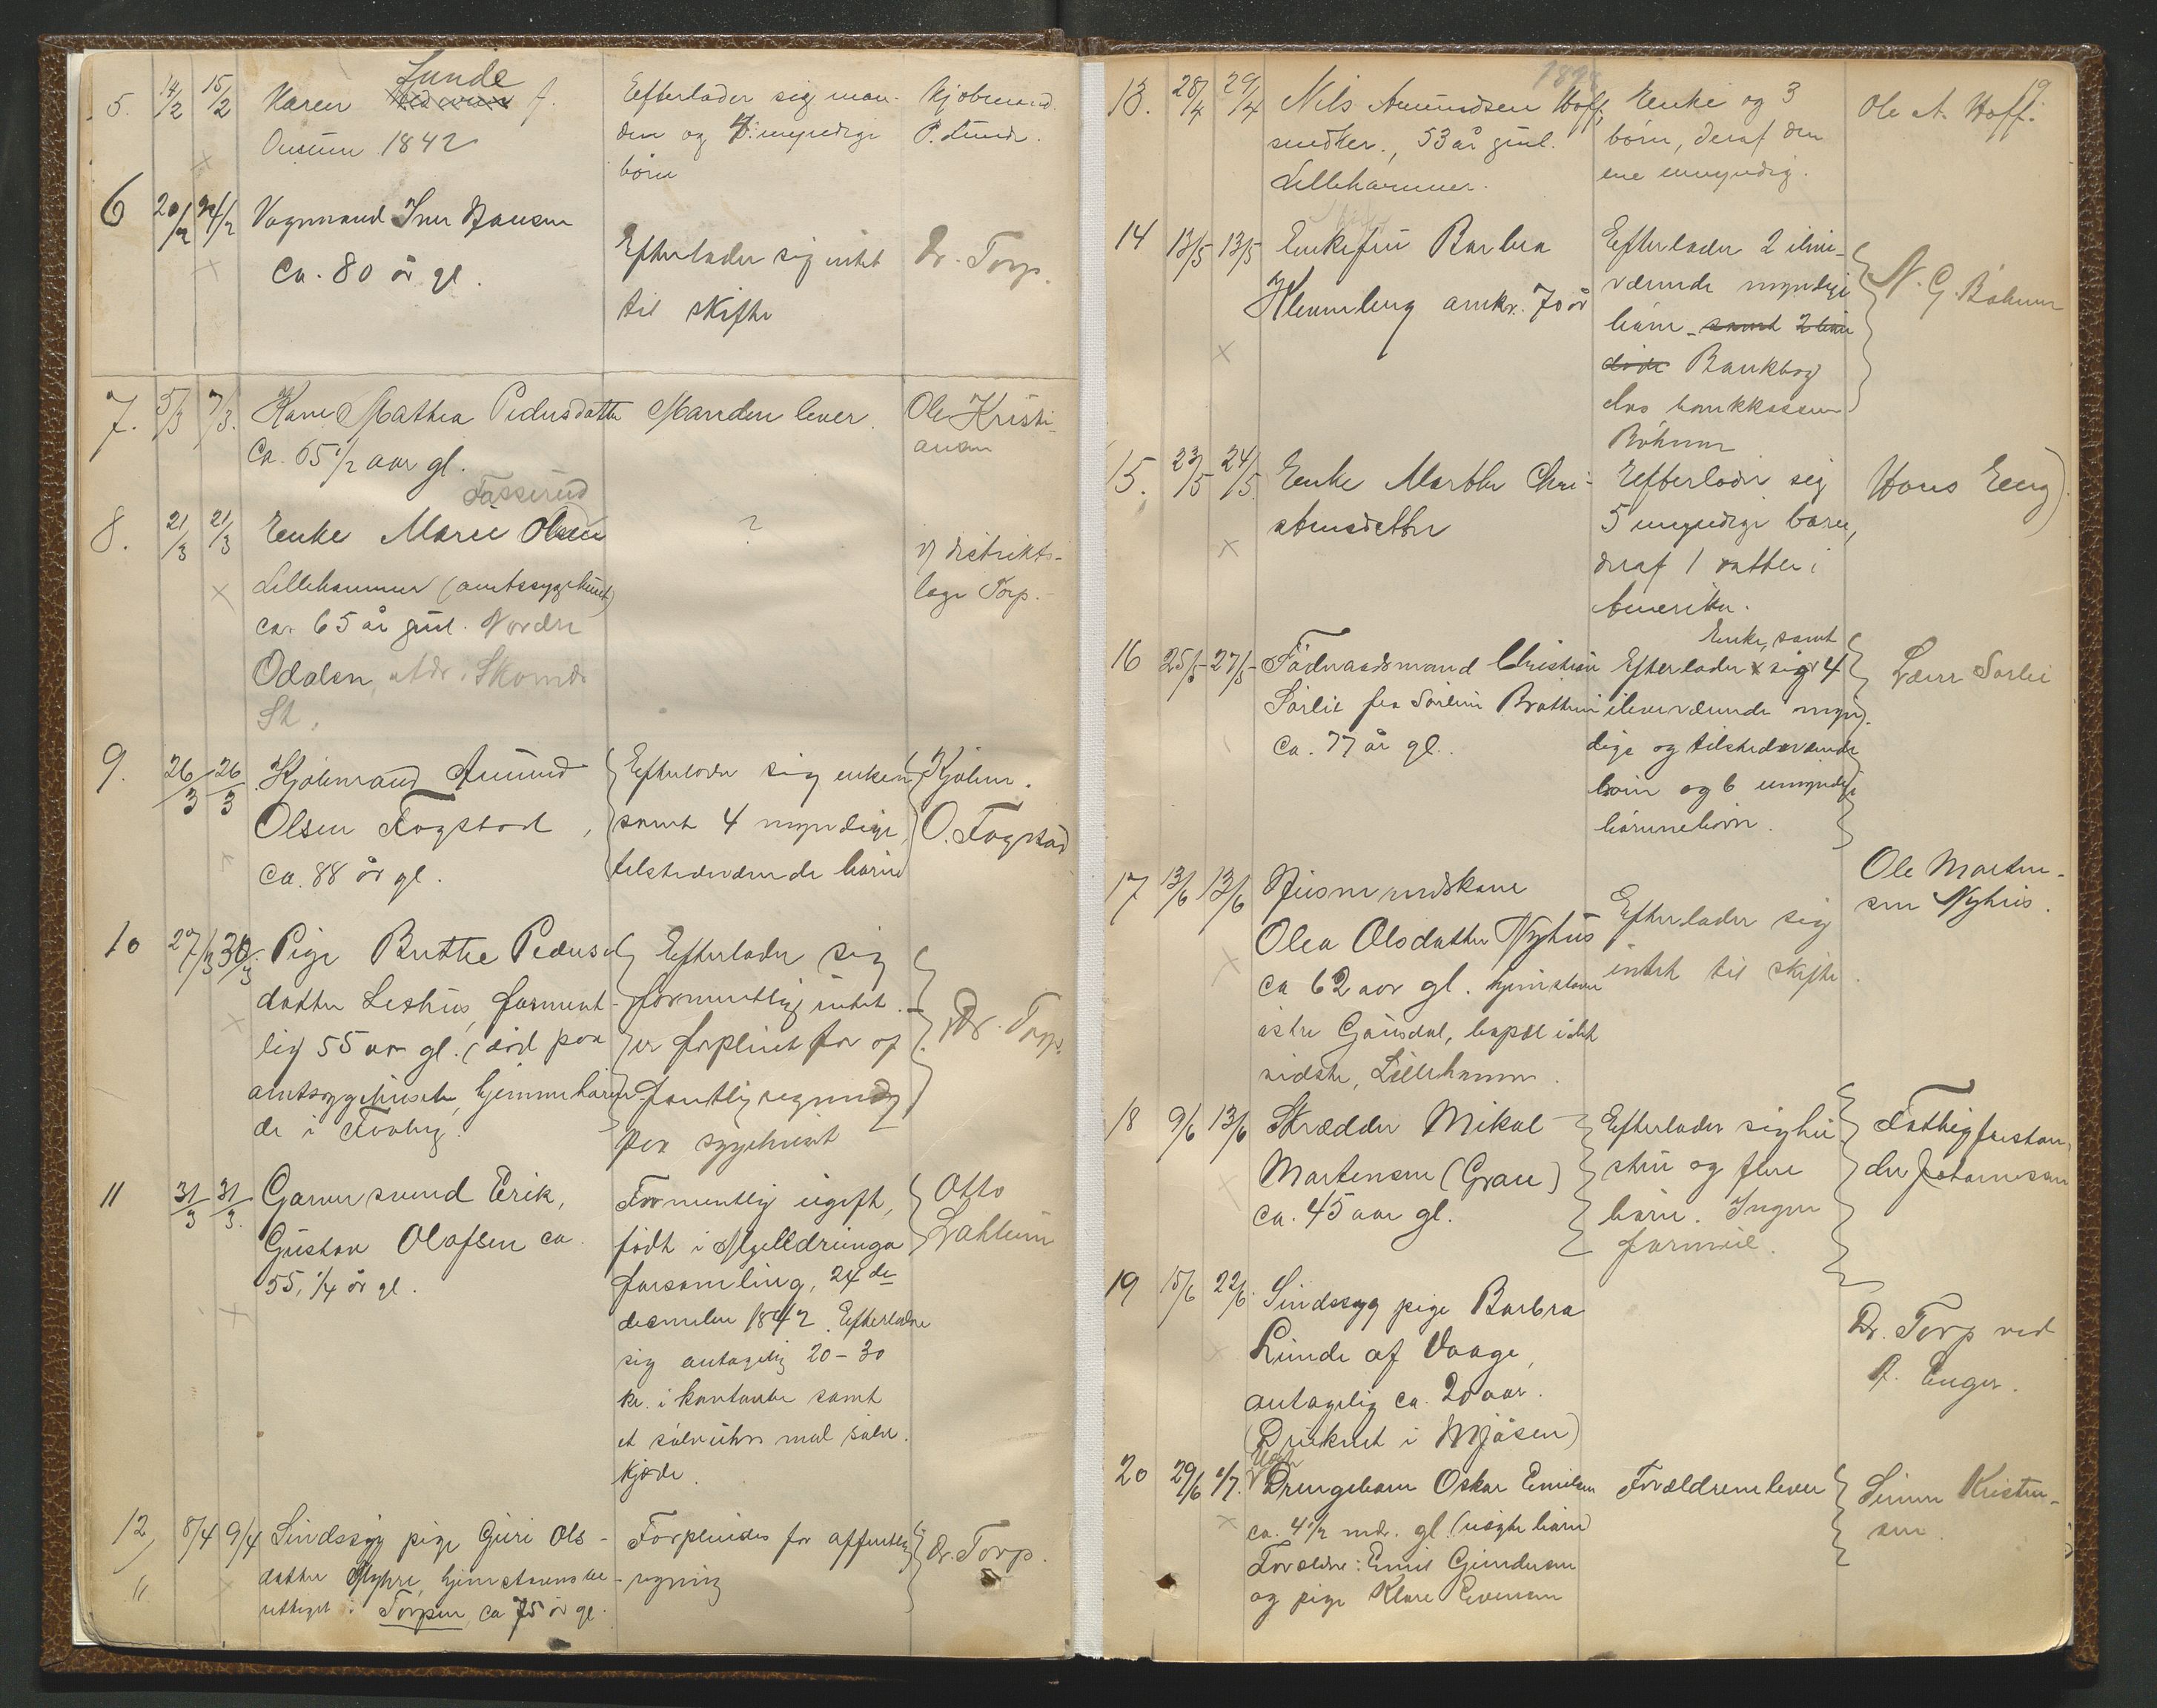 5. 14/2 15/2 Karen Lunde f. Efterlader sig man- Kjøbmand
Onsum 1842 den og 7 umyndige P. Lunde.
børn
6 20/2 24/2 Vognmand Iver Hansen
Ca. 80 år gl. Efterlader sig intet Dr. Torp.
til skifte
7. 5/3 7/3. Kone Mathea Pedersdatter Manden lever. Ole Kristi-
Ca. 65 1/2 aar gl. ansen
Fasserud
8. 21/3 21/3 Enke Marie Olsen ? v/ distrikts-
Lillehammer (amtssygehuset) læge Torp.
ca. 65 år gml. Nordre
Odalen, Adr. Skarnes
St.
9. 26/3 26/3 Kjøbmand Amund Efterlader sig enken Kjøbm.
Olsen Fogstad, samt 4 myndige, O. Fogstad
ca. 88 år gl. tilstedeværende børn
10 27/3 30/3 Pige Berthe Peders- Efterlader sig
datter Leshus, forment- formentlig intet.
lig 55 aar gl. (død paa er forpleiet for of- Dr. Torp.
amtssygehuset, hjemmehøren- fentlig regning
de i Faaberg. paa sygehuset
11 31/3 31/3. Garversvend Erik, Formentlig ugift, Otto
Gustav Olofsen ca. født i Mjelldrunga Dahlum
55, 1/4 år gl. forsamling, 24de
december 1842. Efterlader
sig antagelig 20-30
kr. i kontanter samt
et sølvuhr med sølv-
kjæde.
12, 8/4 9/4 Sindssyg pige Guri Ols- Forpleiedes for offentlig Dr. Torp.
datter Myhre, hjemstavnsbe- regning
rettiget i Torpen, ca 75 år gl.
1898 19.
13. 28/4 29/4 Nils Amundsen Hoff, Enke og 3 Ole A. Hoff.
snedker, 53 år gml. børn, deraf den
Lillehammer. ene umyndig.
14 13/5 13/5 Enkefru Barbra Efterlader 2 tilste-
Klemmberg omkr. 70 år værende myndige N. G. Bøhmer
børn - samt 2 børn
døde Bankbog
hos bankkasserer
Bøhmer
15. 23/5 24/5. Enke Marthe Chri- Efterlader sig Hans Eeng
stensdatter 5 myndige børn,
deraf 1 datter i
Amerika.
Enke, samt
16 25/5 27/5 Føderaadsmand Christian Efterlader sig 4 Lærer Sørlie
Sørlie fra Sørlien Brøttum tilstedeværende myn-
Ca. 77 år gl. dige og tilstedeværende
børn og 6 umyndige
børnebørn.
17 13/6 13/6 Husmandskone Ole Marten-
Olea Olsdatter Nyhus Efterlader sig sen Nyhus.
ca 62 aar gl. hjemstavn intet til skifte.
østre Gausdal, bopæl i det
sidste, Lillehammer.
18 9/6 13/6 Skrædder Mikal Efterlader sig hu- Fattigforstan-
Martensen (Grau) stru og flere der Johannesen
ca. 45 aar gl. børn. Ingen
formue.
19 15/6 22/6. Sindssyg pige Barbra
Lunde af Vaage, Dr. Torp ved
antagelig ca. 20 aar. A. Enger.
(Druknet i Mjøsen)
20 29/6 1/7. Drengebarn Oskar Emilsen Forældrene lever Simen Kristen-
ca. 4 1/2 md. gl. (uægte barn) sen.
Forældre: Emil Gundersen
og pige Klara Evensen